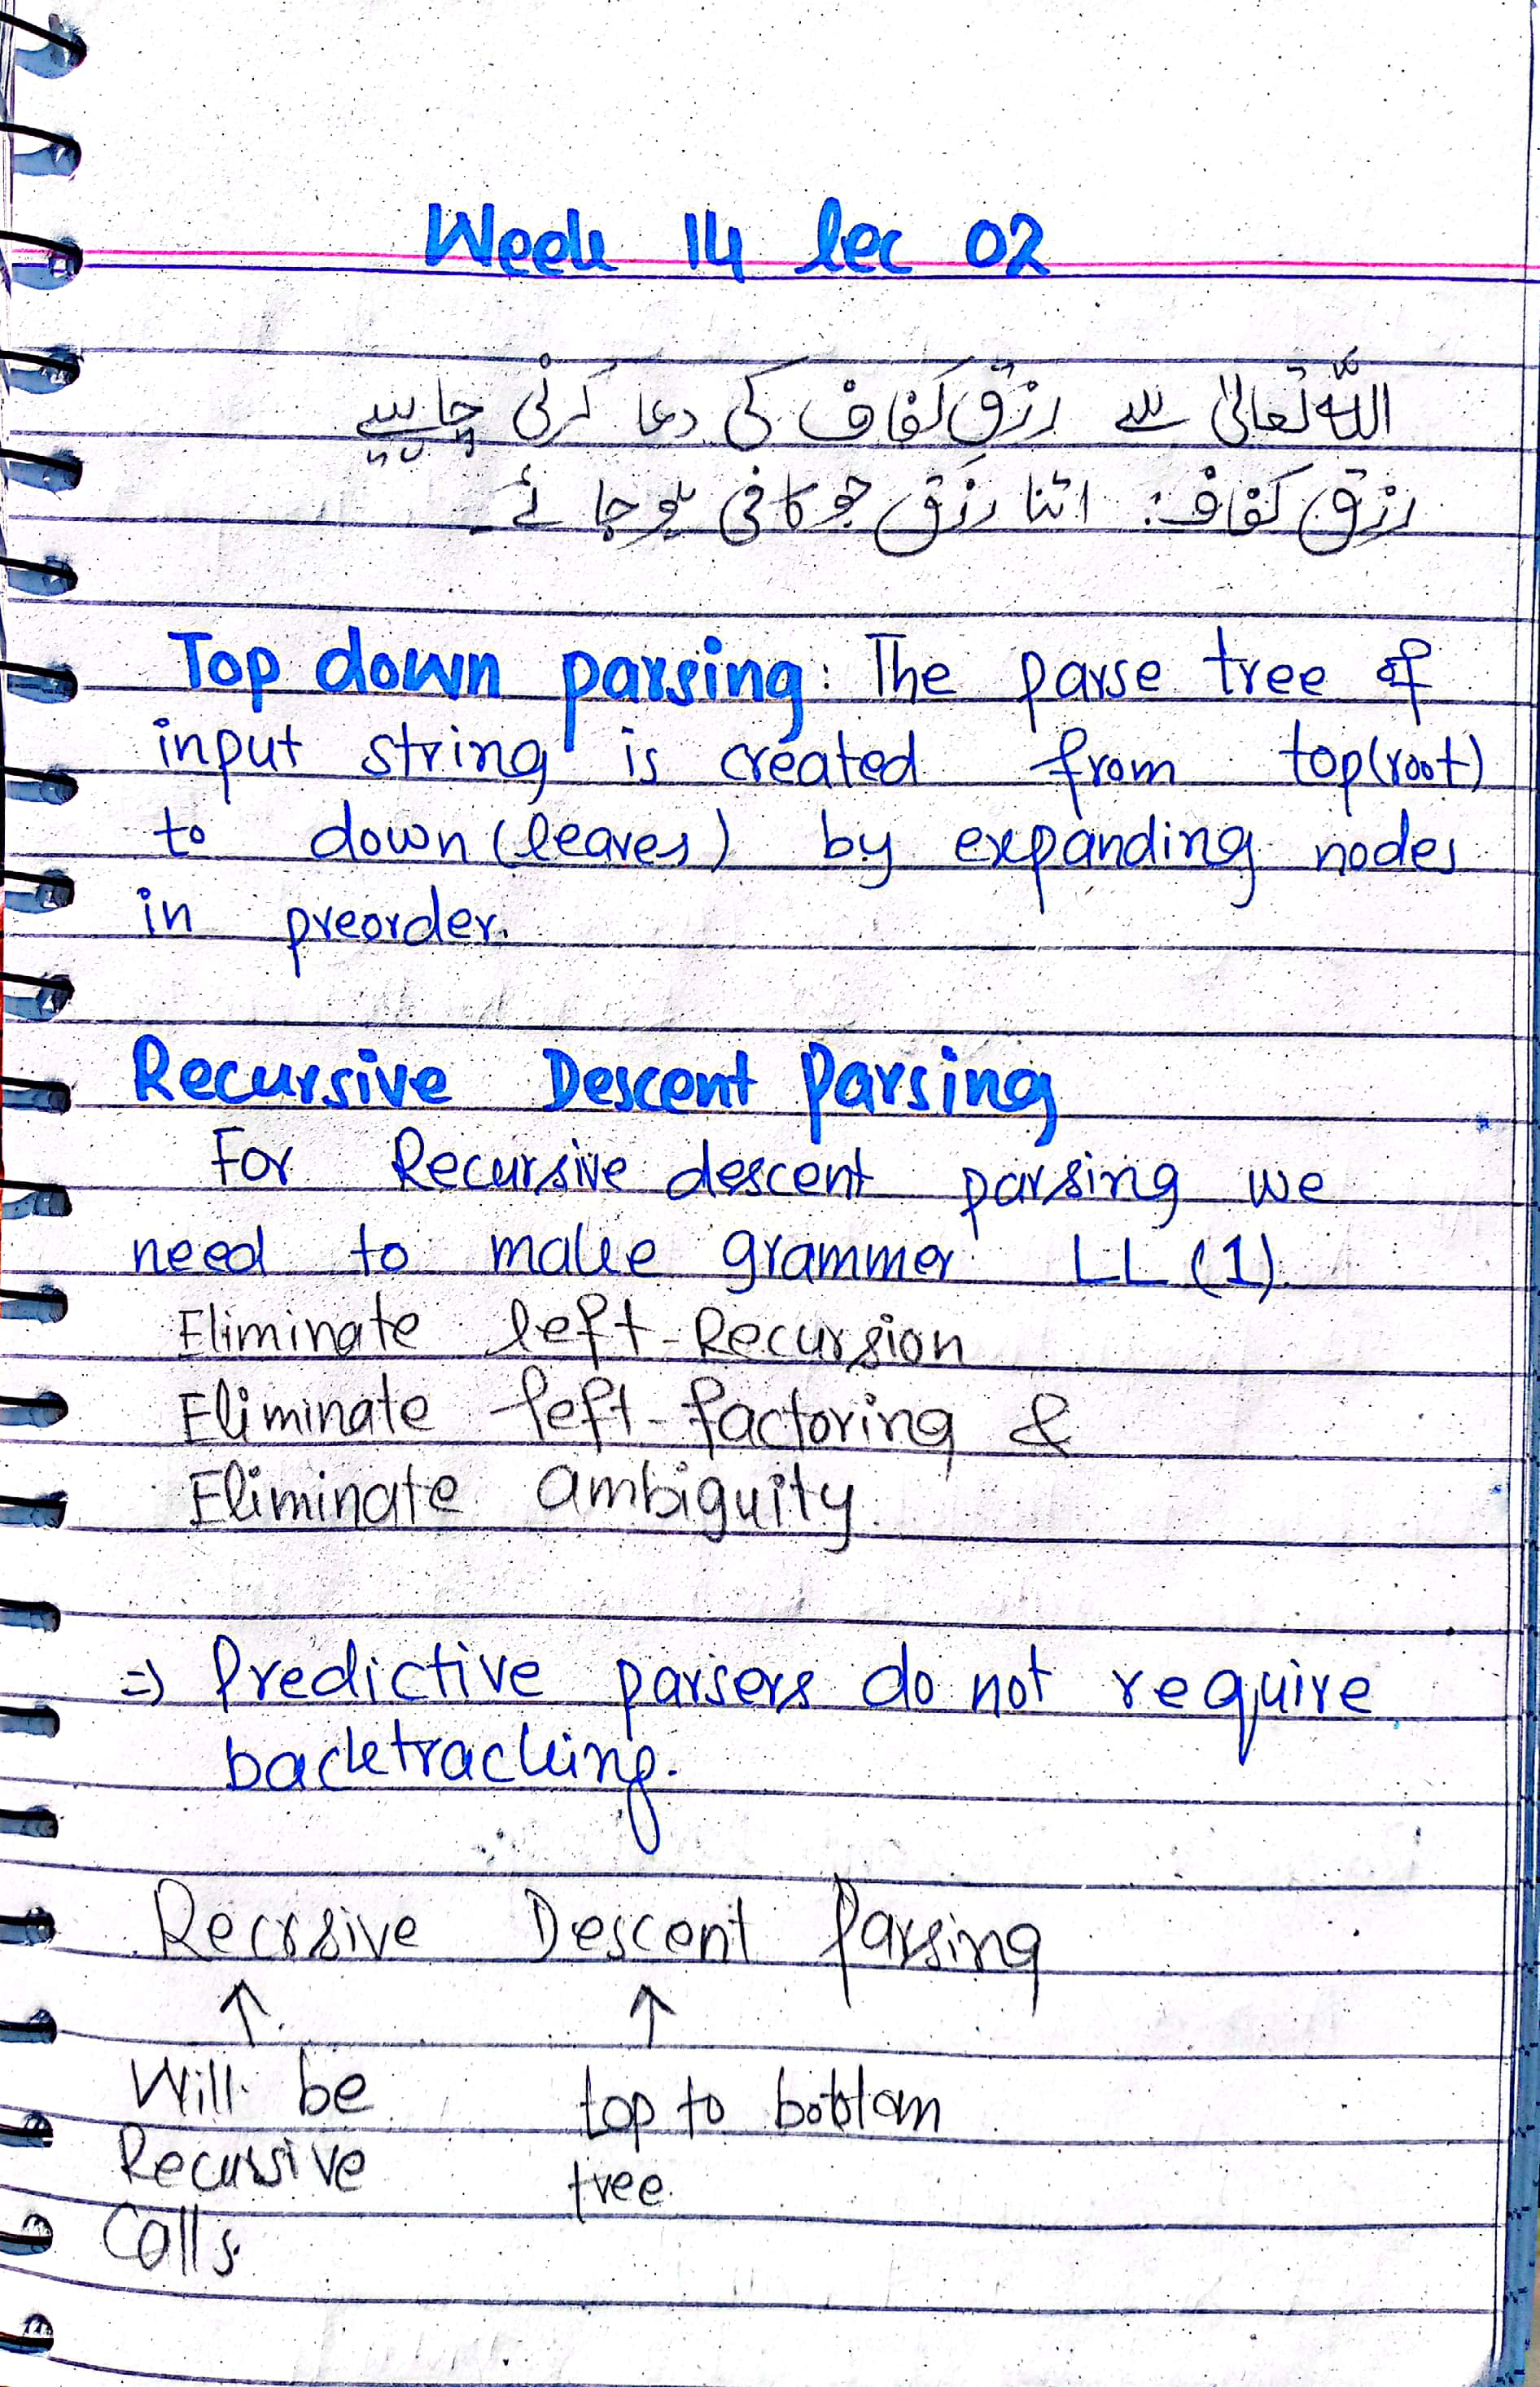 Week 14 lec 02
اللہ تعالیٰ سے رزق کفاف کی دعا کرنی چاہیے
رزق کفاف: اتنا رزق جو کافی ہو جائے۔
Top down parsing: The parse tree of
input string is created from top(root)
to down (leaves) by expanding nodes
in preorder.
Recursive Descent Parsing
For Recursive descent parsing we
need to make grammer LL (1)
Eliminate left-Recursion
Eliminate left-factoring &
Eliminate ambiguity.
⇒ Predictive parsers do not require
backtracking.
Recrsive Descent Parsing
↑ ↑
Will be top to bottom
Recursive tree.
Calls.